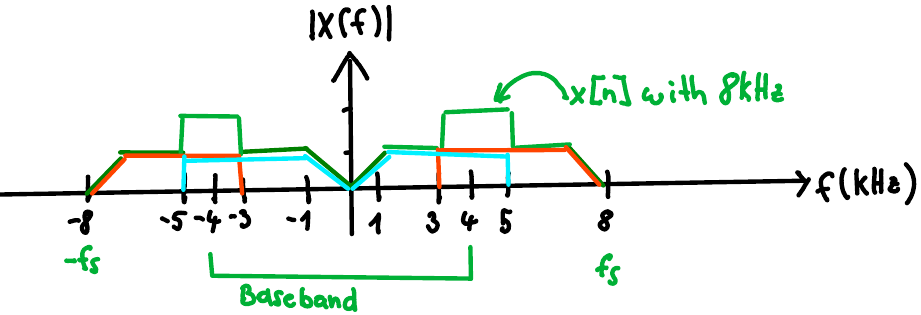 |X(f)|
x[n] with 8kHz
f(kHz)
-8 -5 -4 -3 -1 1 3 4 5 8
-fs fs
Baseband